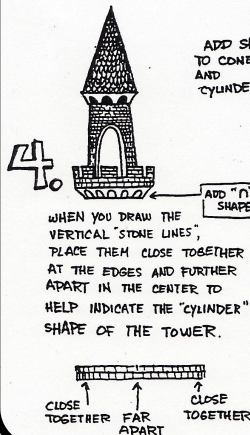 ADD S
TO CONE
AND
CYLINDE
4.
ADD "∩"
SHAPE
WHEN YOU DRAW THE
VERTICAL "STONE LINES",
PLACE THEM CLOSE TOGETHER
AT THE EDGES AND FURTHER
APART IN THE CENTER TO
HELP INDICATE THE "CYLINDER"
SHAPE OF THE TOWER.
CLOSE
TOGETHER
FAR
APART
CLOSE
TOGETHER